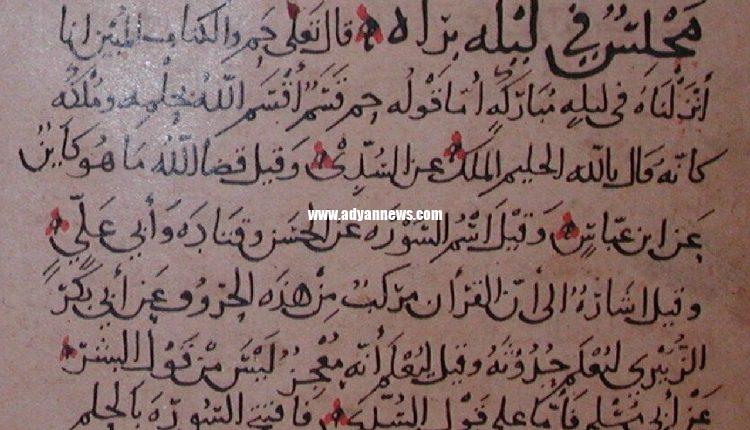 مَجْلِسٌ فِي لَيْلَه بَرَاه قال تعَلى حم والكتاب المبُين انا
أنزَلنَاهَ فى ليلهٍ مُبَارَكهٍ امَا قَوْلُه حِم قَسَم أقْسَمَ اللهُ بحِلمِه وَمُلكه
كانّه قال بالله الحليم الملك عن السُّدِّى وَقيل قضَا اللهُ مَا هو كاَين
www.adyannews.com
عَن ابن عبّاسٍ وَقيْل اسْمُ السّوُرَه عَن الحَسَن وقتادَه وَأبي عَلّي
وقيل اشارَةُ الى أنّ القرْأن مركبُ مِنْ هذه الحرُوف عَن أبي بَكرٍ
الزُّبَيْرى ليُعْلمَ حدُوثهُ وقيل ليُعْلمَ أنّه مُعْجزُ لَيْسَ مِنْ قَوْل البَشَرِ
عَنْ أبي مُسْلم فأمّا على قول السُّدِّى فافتتح السُّورَه بالحِلم